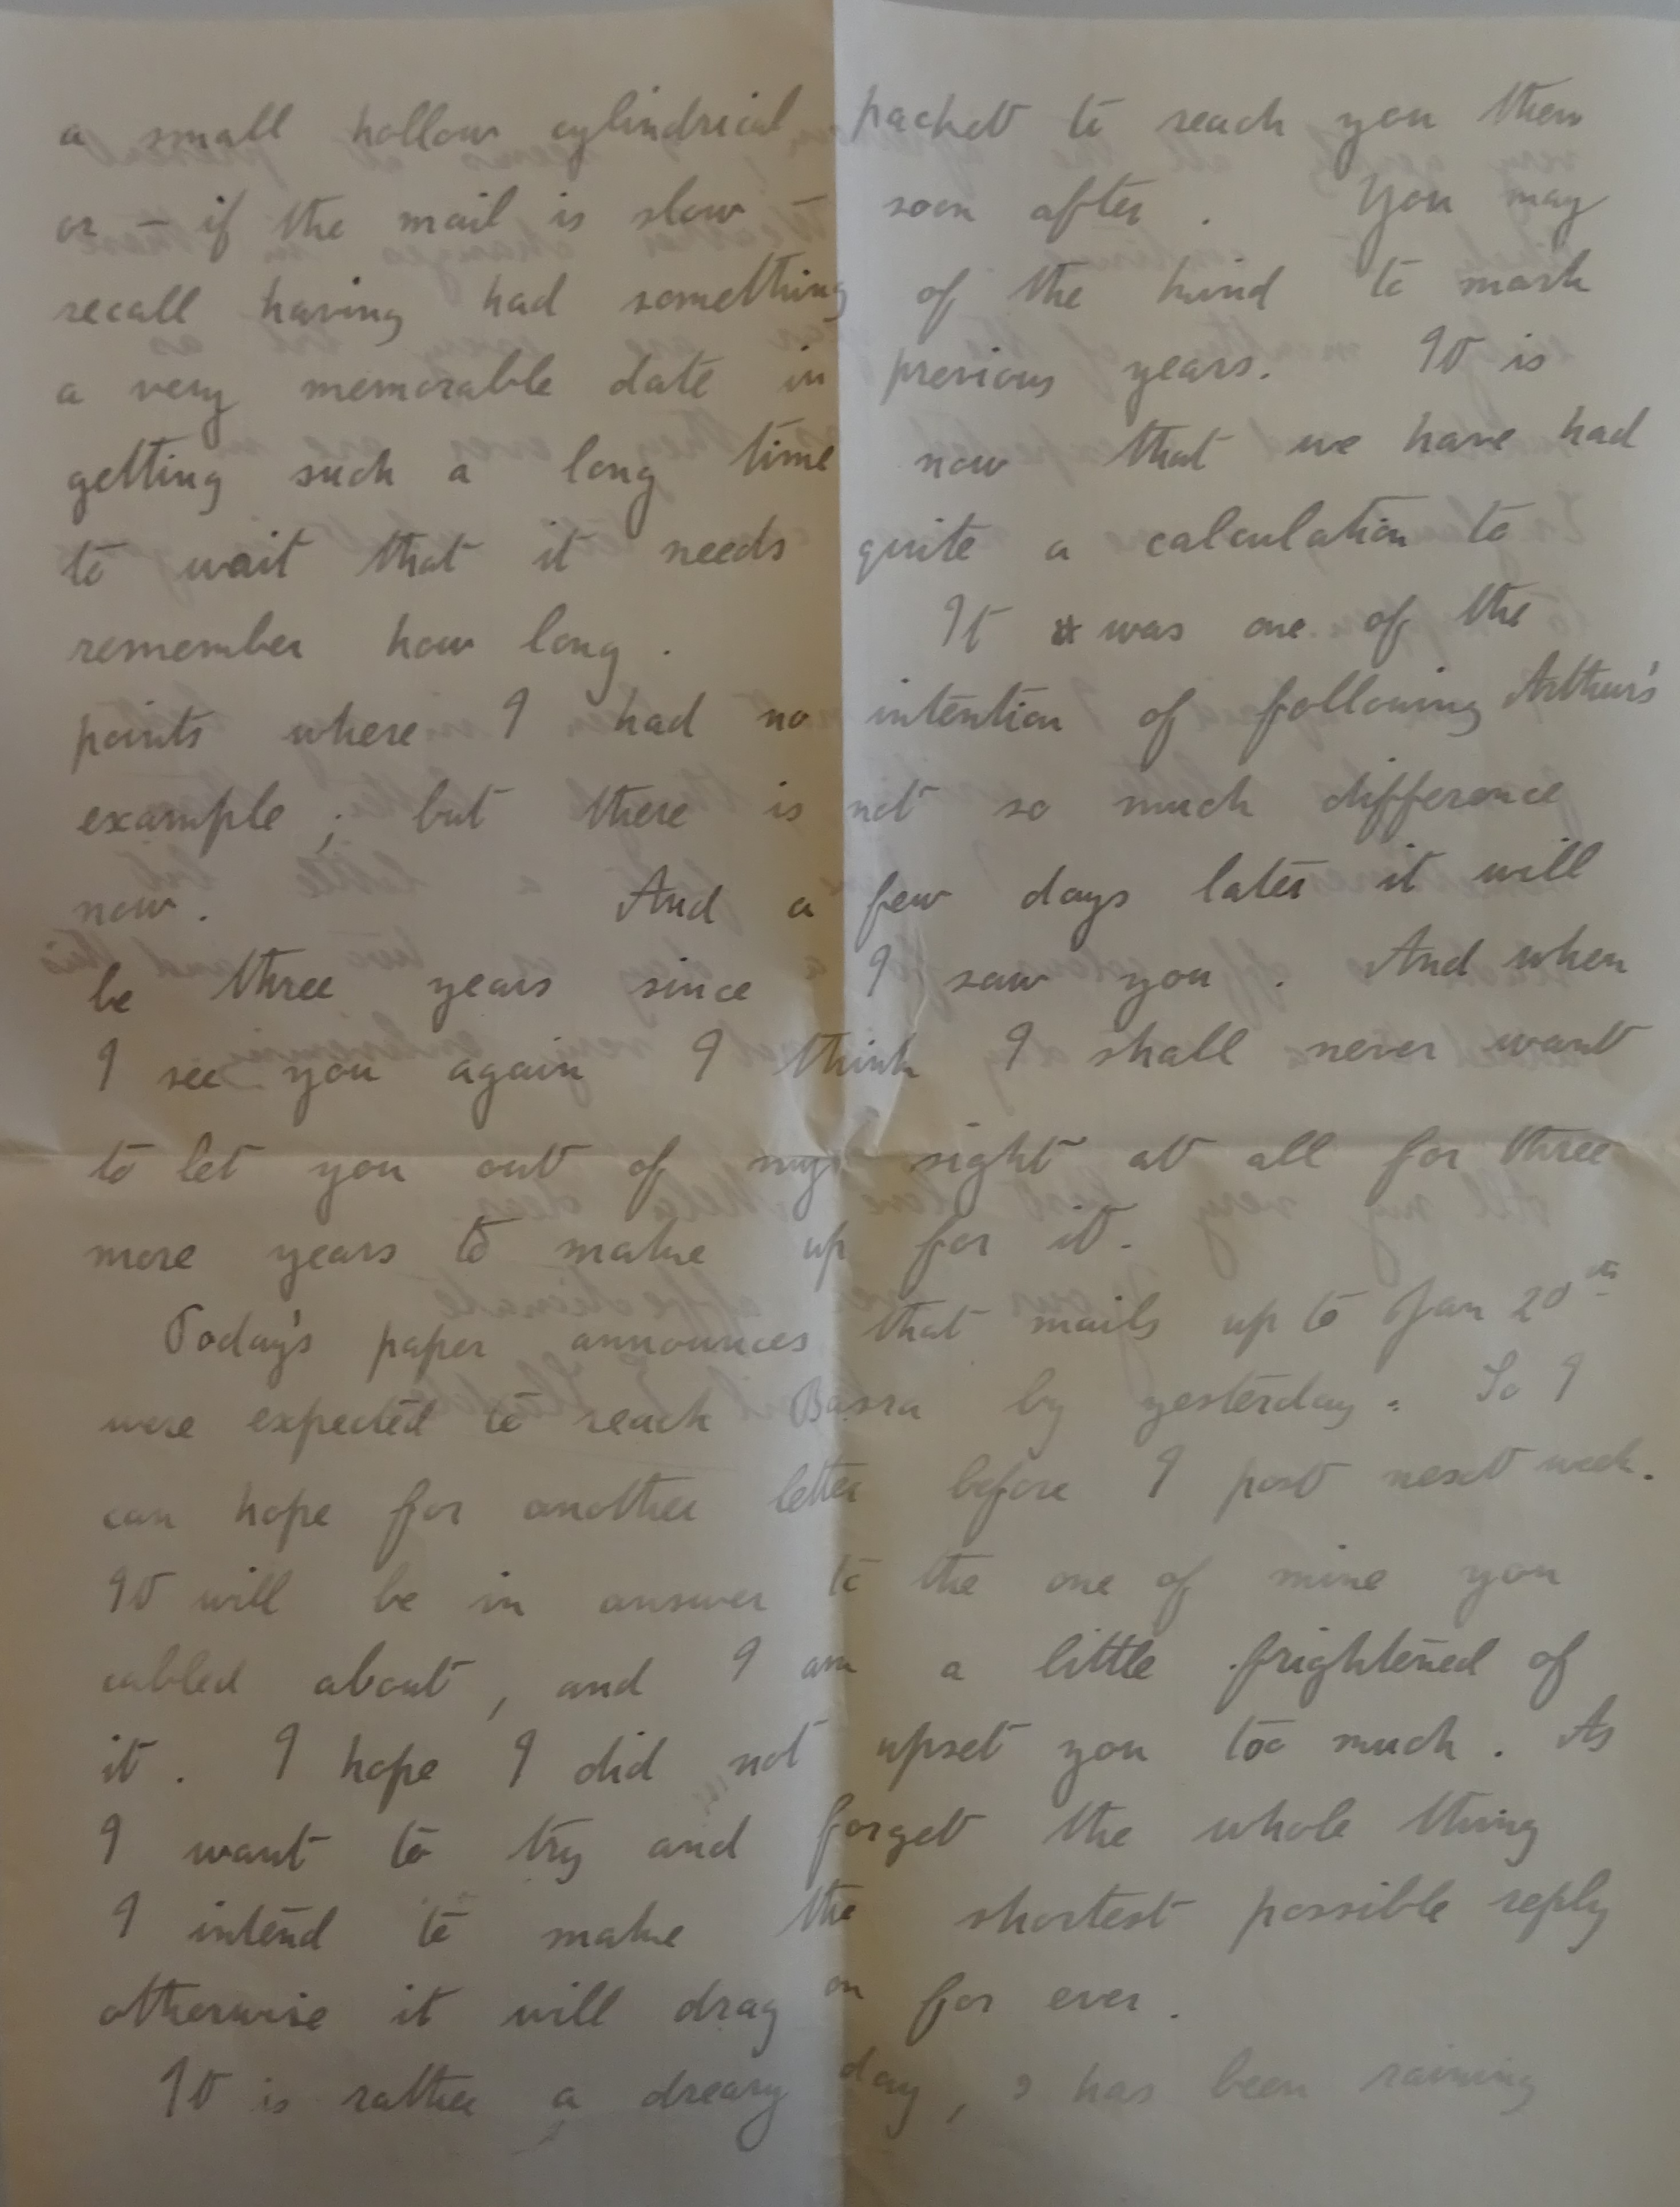 a small hollow cylindrical packet to reach you then
or – if the mail is slow – soon after. You may
recall having had something of the kind to mark
a very memorable date in previous years. It is
getting such a long time now that we have had
to wait that it needs quite a calculation to
remember how long. It was one of the
points where I had no intention of following Arthur's
example; but there is not so much difference
now. And a few days later it will
be three years since I saw you. And when
I see you again I think I shall never want
to let you out of my sight at all for three
more years to make up for it.
Today's paper announces that mails up to Jan 20th
were expected to reach Basra by yesterday. So I
can hope for another letter before I post next week.
It will be in answer to the one of mine you
cabled about, and I am a little frightened of
it. I hope I did not upset you too much. As
I want to try and forget the whole thing
I intend to make the shortest possible reply
otherwise it will drag on for ever.
It is rather a dreary day, & has been raining